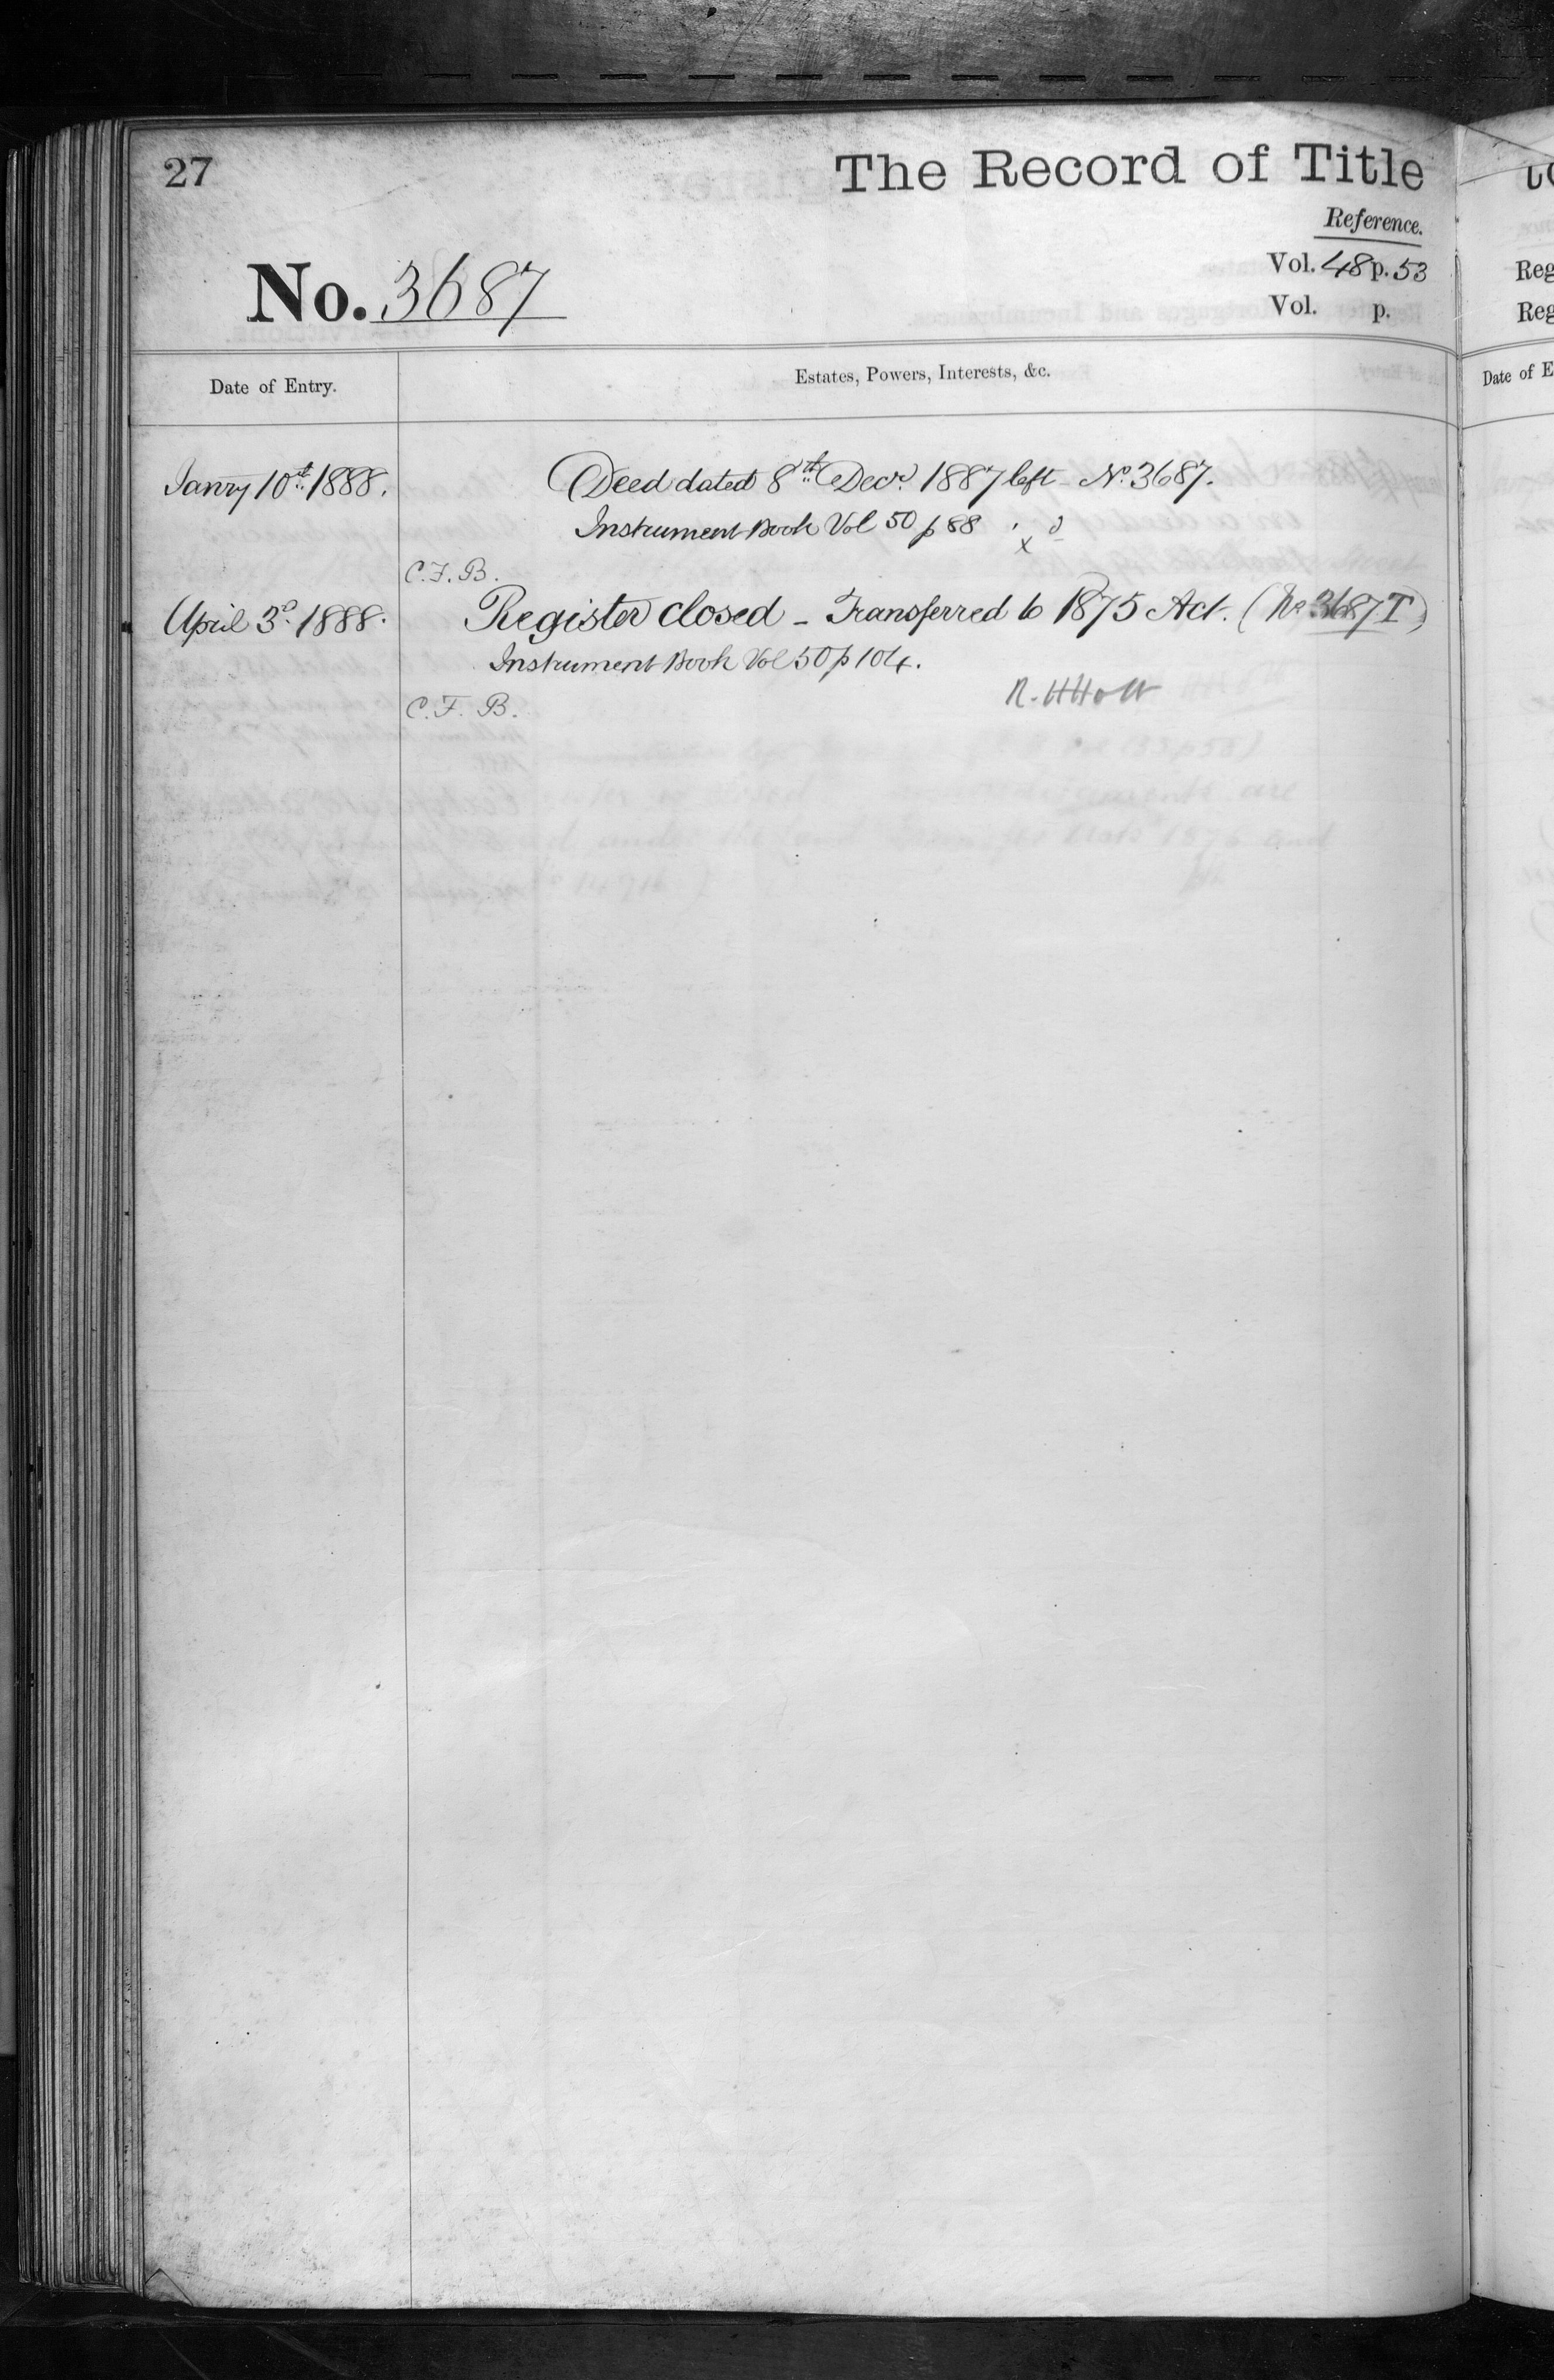 27
The Record of Title
Reference.
No. 3687
Vol. 48 p. 53
Vol. p.
Date of Entry.
Estates, Powers, Interests, &c.
Janry 10th 1888.
Deed dated 8th Decr. 1887 left - No. 3687.
Instrument Book Vol 50 p 88
x
C.F.B.
April 3d. 1888.
Register closed - Transferred to 1875 Act. (No 3687 T)
Instrument Book Vol 50 p 104.
R. H Holt
C.F.B.
Reg
Reg
Date of E